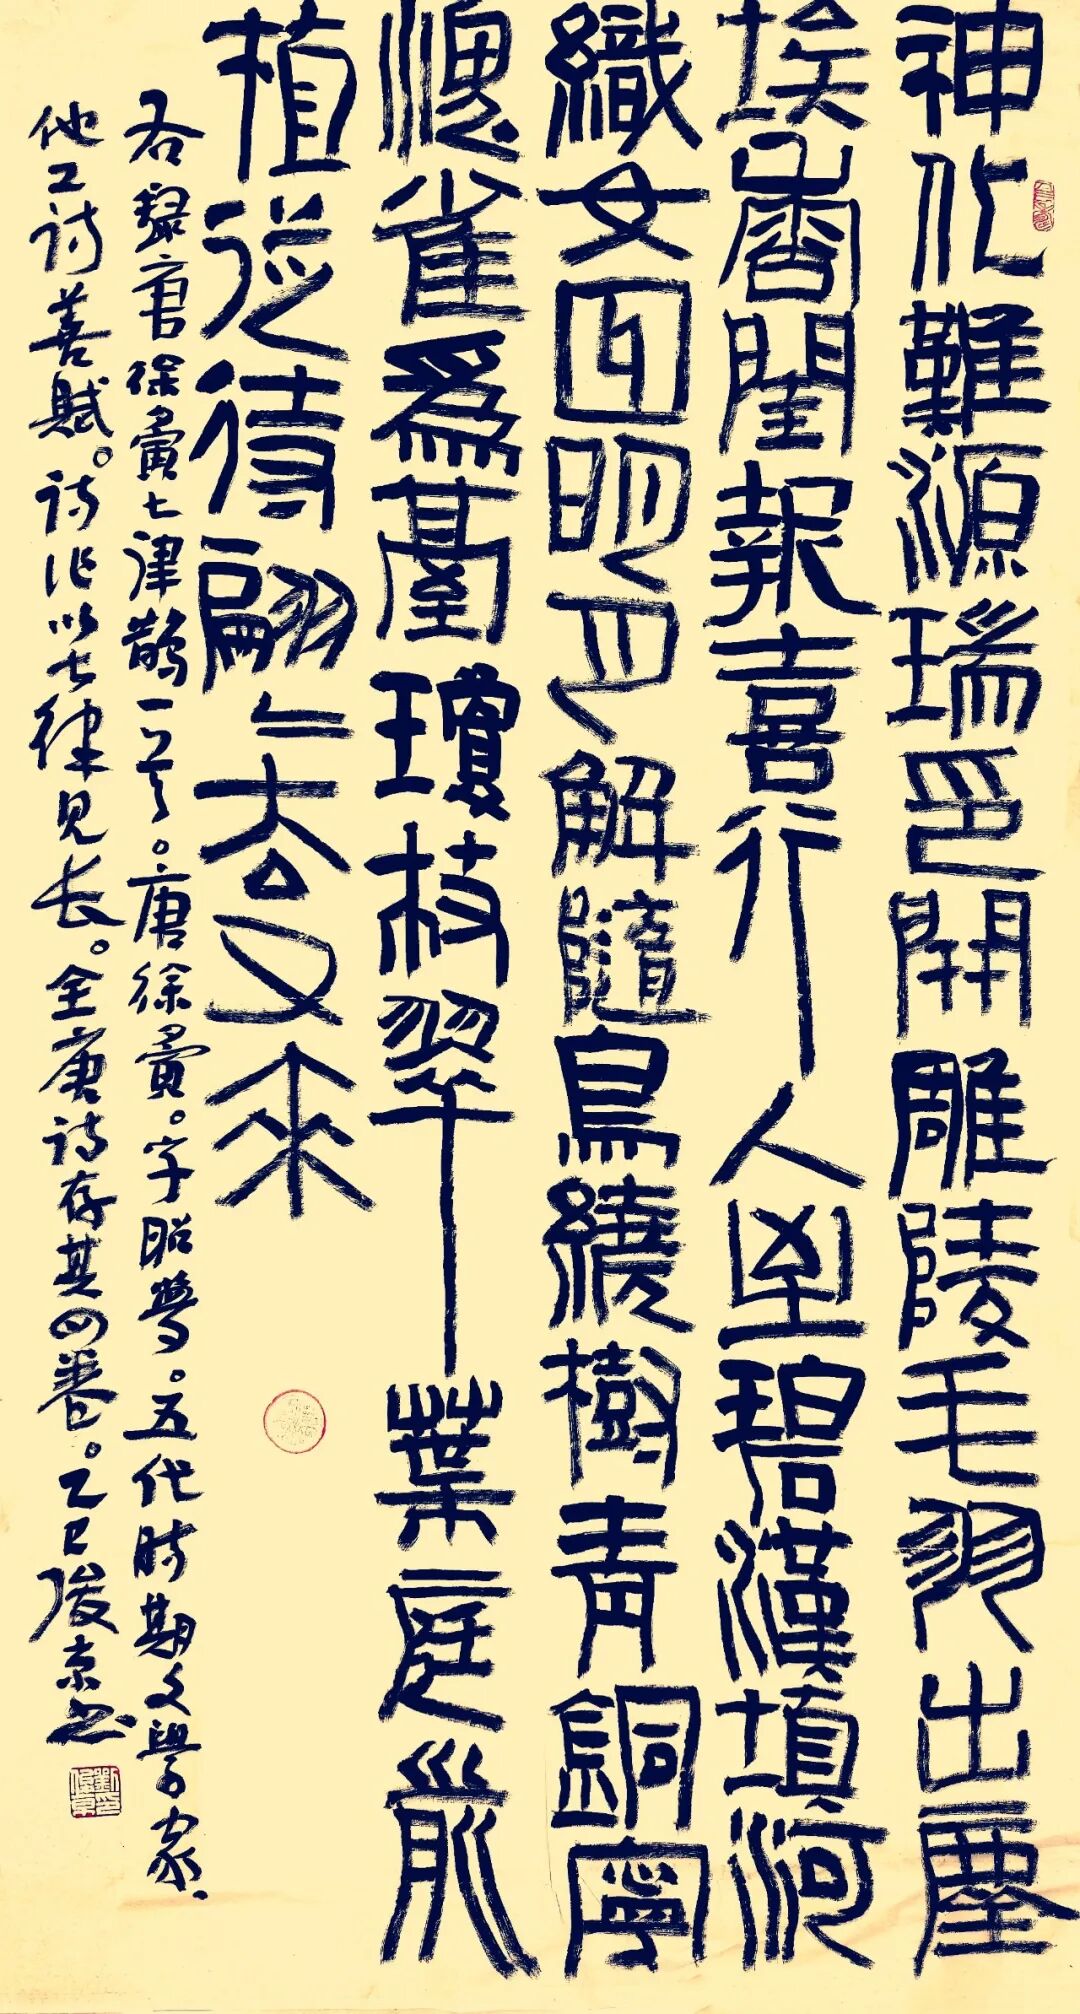 神化難源瑞即開雕陵毛羽出塵
埃香閨報喜行人至碧漢填河
織女回明月解隨烏繞樹青銅寧
愧雀為臺瓊枝翠葉庭前
植從待翩〻去又來
右録唐徐夤七律鹊一首。唐徐夤。字昭夢。五代時期文學家、
他工诗善賦。诗作以七律见长。全唐诗存其四卷。乙巳俊京书